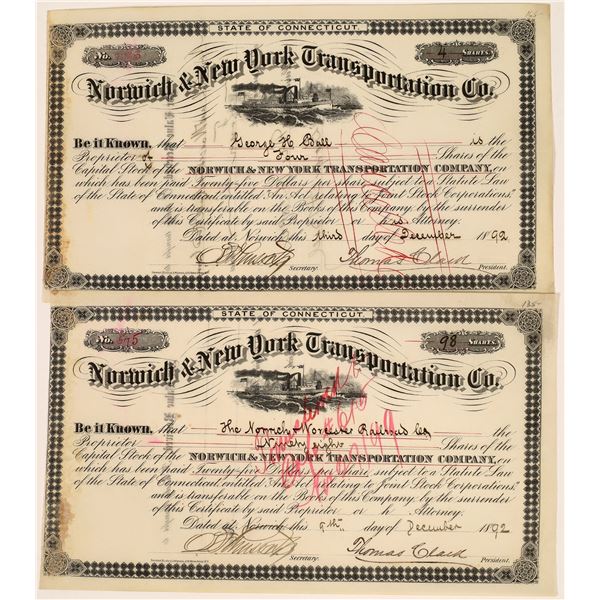 STATE OF CONNECTICUT.
No.
4 SHARES.
Norwich & New York Transportation Co.
Be it Known, that George H Ball is the
Proprietor of Four Shares of the
Capital Stock of the NORWICH & NEW YORK TRANSPORTATION COMPANY, on
which has been paid Twenty-five Dollars per share subject to a Statute Law
of the State of Connecticut, entitled "An Act relating to Joint Stock Corporations,"
and is transferable on the Books of this Company by the surrender
of this Certificate by said Proprietor or his Attorney.
Dated at Norwich this third day of December 1892
Secretary. Thomas Clark President.
Cancelled
135-
STATE OF CONNECTICUT.
No. 575
98 SHARES.
Norwich & New York Transportation Co.
Be it Known, that The Norwich & Worcester Railroad Co
Proprietor Ninety eight Shares of the
Capital Stock of the NORWICH & NEW YORK TRANSPORTATION COMPANY, on
which has been paid Twenty-five Dollars per share, subject to a Statute Law
of the State of Connecticut, entitled "An Act relating to Joint Stock Corporations,"
and is transferable on the Books of this Company by the surrender
of this Certificate by said Proprietor or h Attorney.
Dated at Norwich this 9th day of December 1892
Secretary. Thomas Clark President.